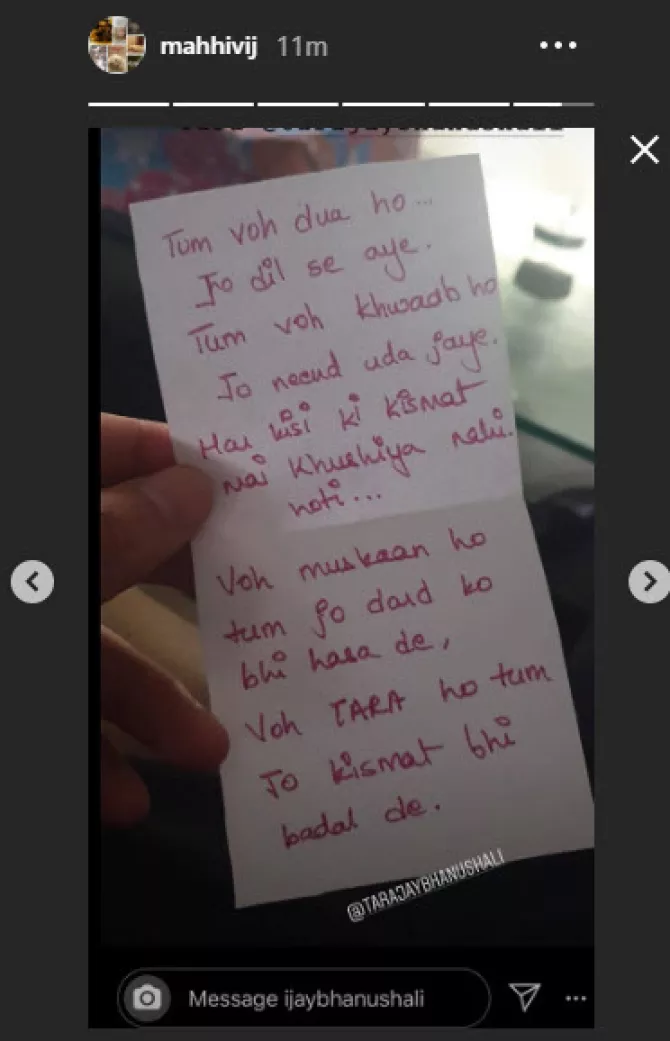 mahhivij 11m
Tum voh dua ho...
Jo dil se aye.
Tum voh khwaab ho
Jo neend uda jaye.
Har kisi ki kismat
mai khushiya nahi
hoti...
Voh muskaan ho
tum jo dard ko
bhi hasa de,
Voh TARA ho tum
Jo kismat bhi
badal de.
@TARAJAYBHANUSHALI
Message ijaybhanushali